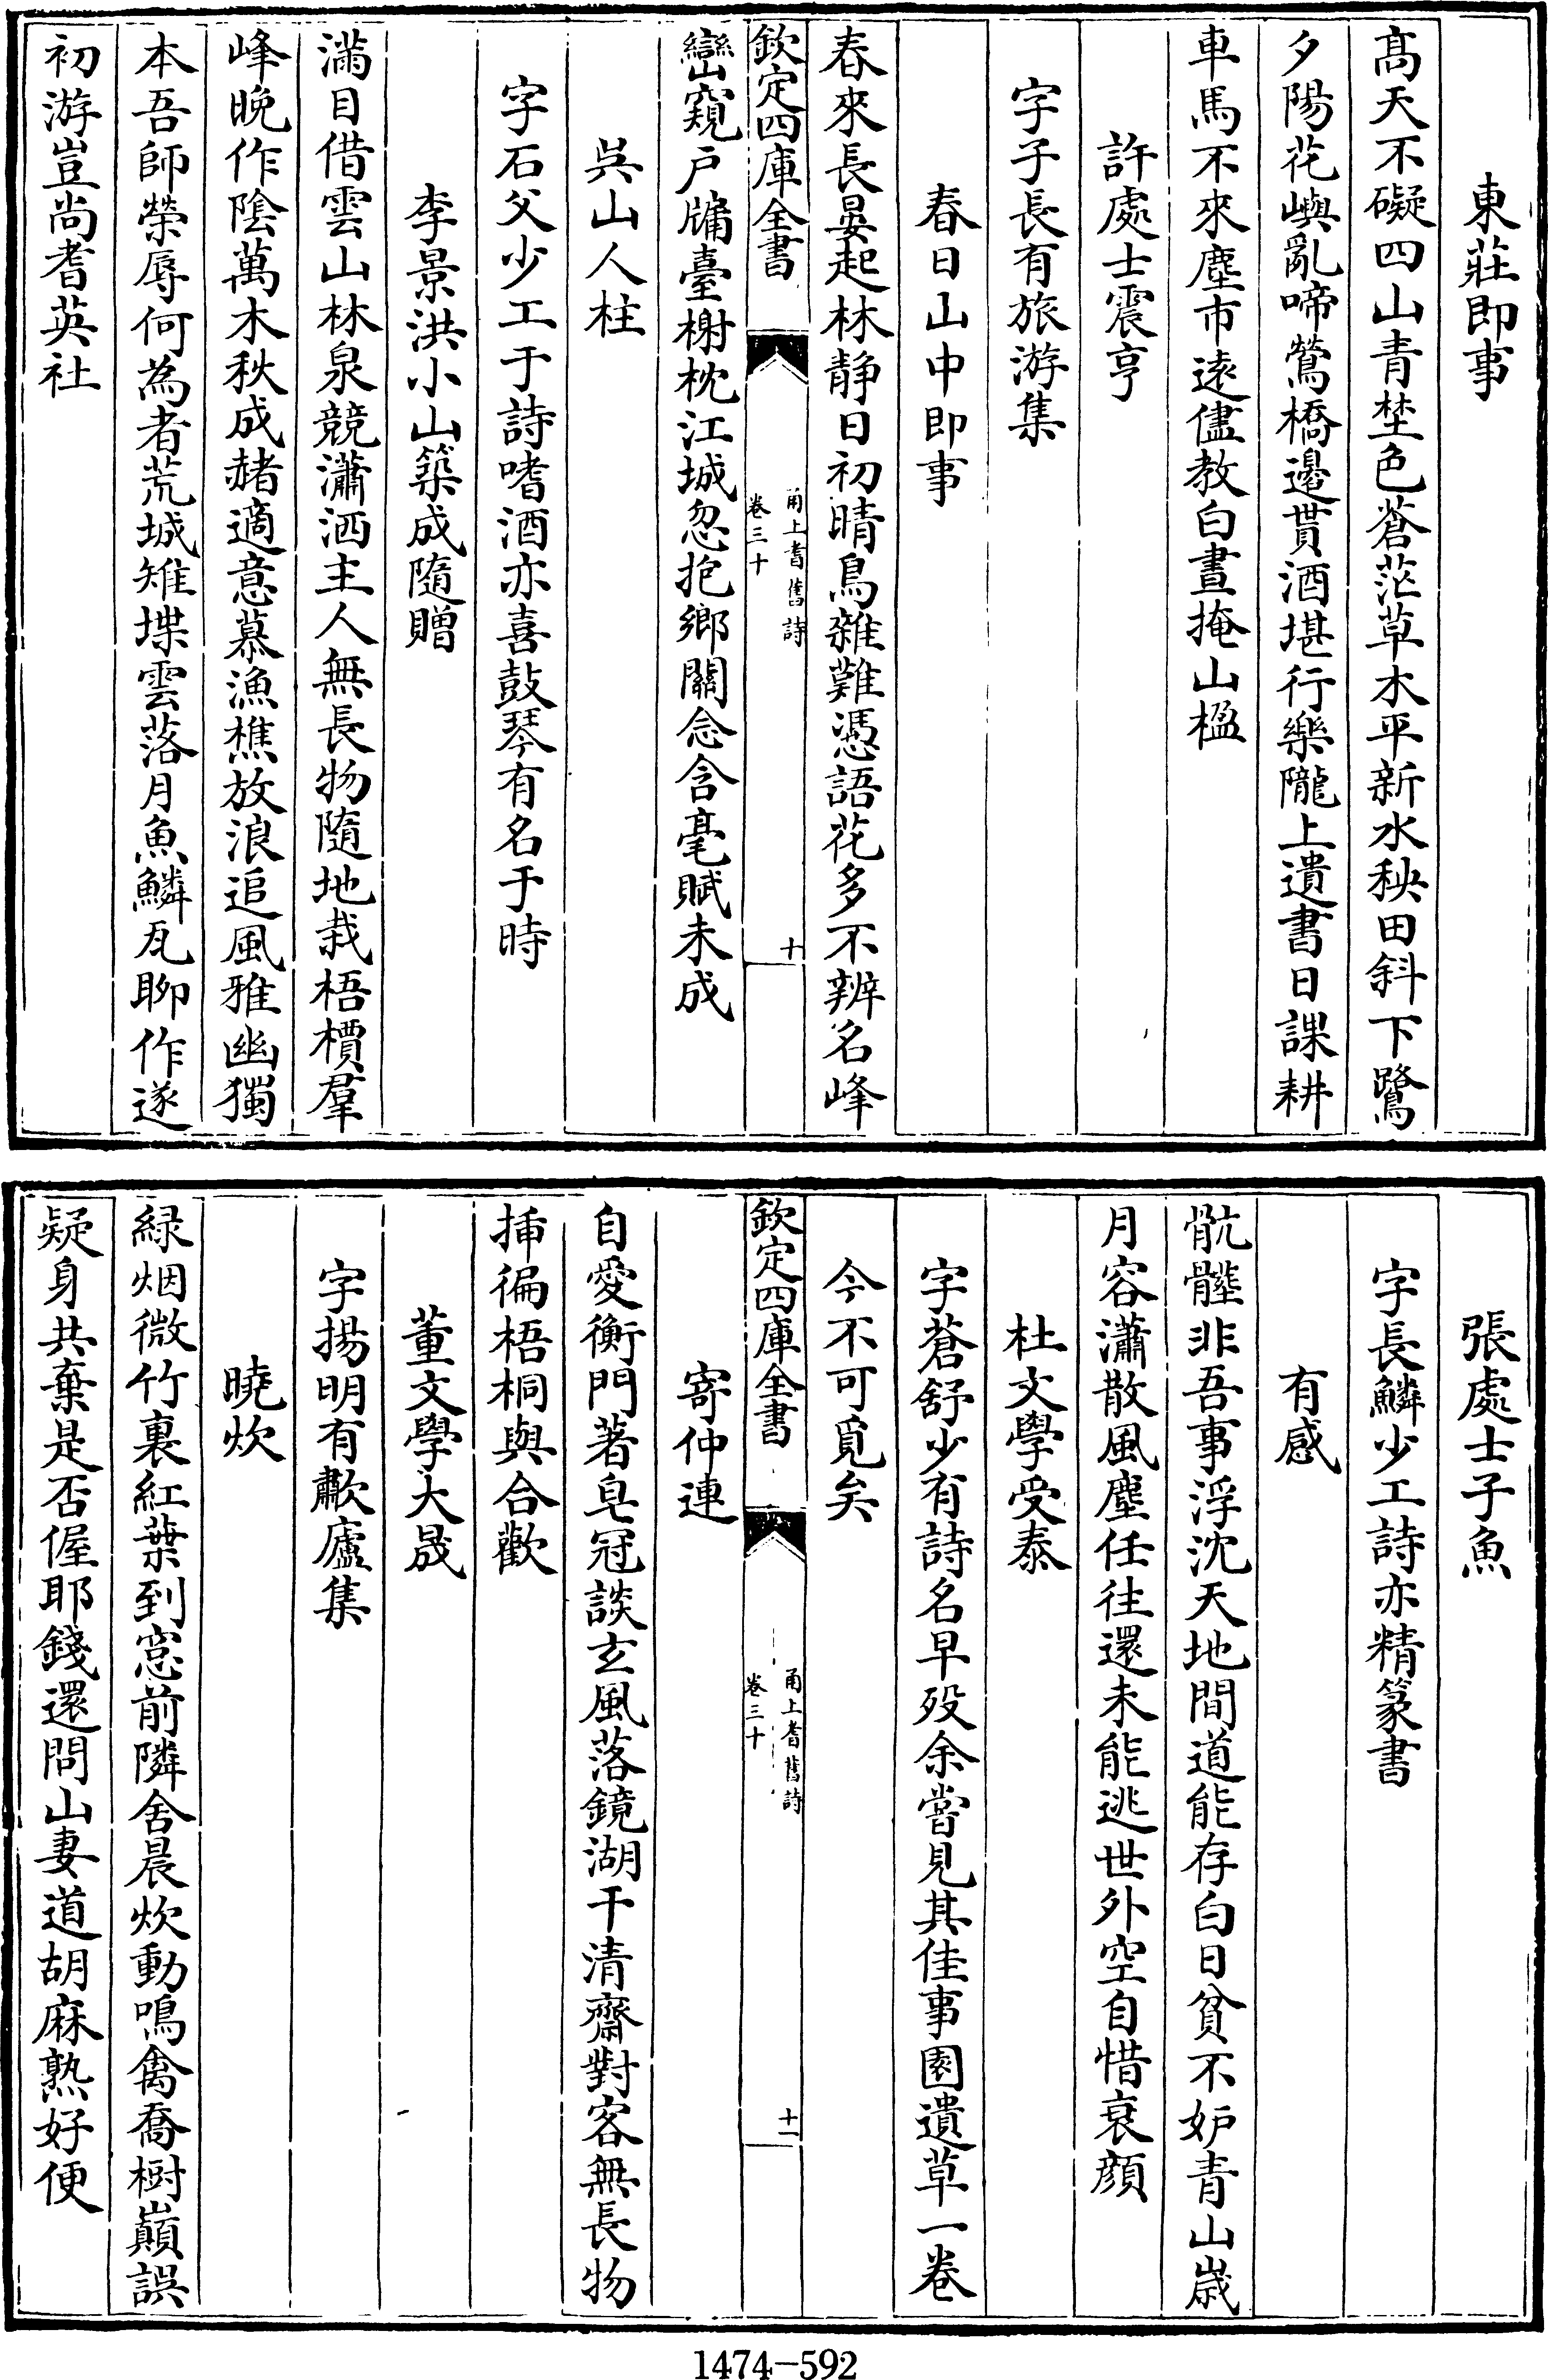 東莊即事
髙天不礙四山青埜色蒼茫草木平新水秧田斜下鷺
夕陽花嶼亂啼鶯橋邊貰酒堪行樂隴上遺書日課耕
車馬不來塵市逺儘教白晝掩山楹
許處士震亨
字子長有旅游集
春日山中即事
春來長晏起林静日初晴鳥雜難憑語花多不辨名峰
欽定四庫全書
甬上耆舊詩
卷三十
十
巒窺戸牖臺榭枕江城忽抱鄉闗念含毫賦未成
吳山人柱
字石父少工于詩嗜酒亦喜鼓琴有名于時
李景洪小山築成隨贈
滿目借雲山林泉競瀟洒主人無長物隨地栽梧檟羣
峰晚作隂萬木秋成赭適意慕漁樵放浪追風雅幽獨
本吾師榮辱何為者荒城雉堞雲落月魚鱗瓦聊作遂
初游豈尚耆英社
張處士子魚
字長鱗少工詩亦精篆書
有感
骯髒非吾事浮沈天地間道能存白日貧不妒青山歳
月容瀟散風塵任往還未能逃世外空自惜衰顔
杜文學受泰
字蒼舒少有詩名早歿余嘗見其佳事園遺草一卷
今不可覓矣
欽定四庫全書
甬上耆舊詩
卷三十
十一
寄仲連
自愛衡門著皂冠談玄風落鏡湖干清齋對客無長物
揷徧梧桐與合歡
董文學大晟
字揚明有歗廬集
曉炊
緑烟微竹裏紅葉到窓前隣舍晨炊動鳴禽喬樹巔誤
疑身共棄是否偓耶錢還問山妻道胡麻熟好便
1474-592